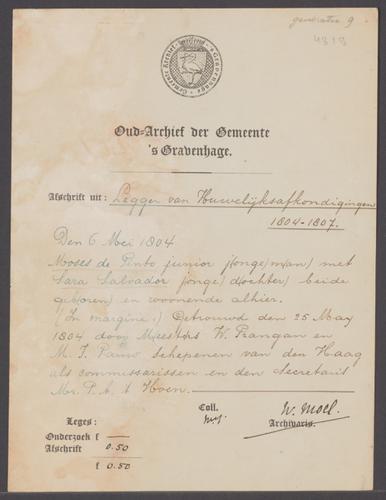 generatie 9
4313
Gemeente Archief 's Gravenhage
Oud-Archief der Gemeente
's Gravenhage.
Afschrift uit: Legger van Huwelijksafkondigingen
1804-1807.
Den 6 Mei 1804
Mooses de Pinto junior j(onge)m(an) met
Sara Salvador j(onge) d(ochter) beide
geb(oren) en woonende alhier.
(In margine:) Getrouwd den 25 May
1804 door Meesters W. Prangan en
M. J. Pauw schepenen van den Haag
als commissarissen en den secretaris
Mr. P. A. t Hoen.
Leges:
Coll.
W. Moll.
Onderzoek f —
Archivaris.
Afschrift 0.50
f 0.50